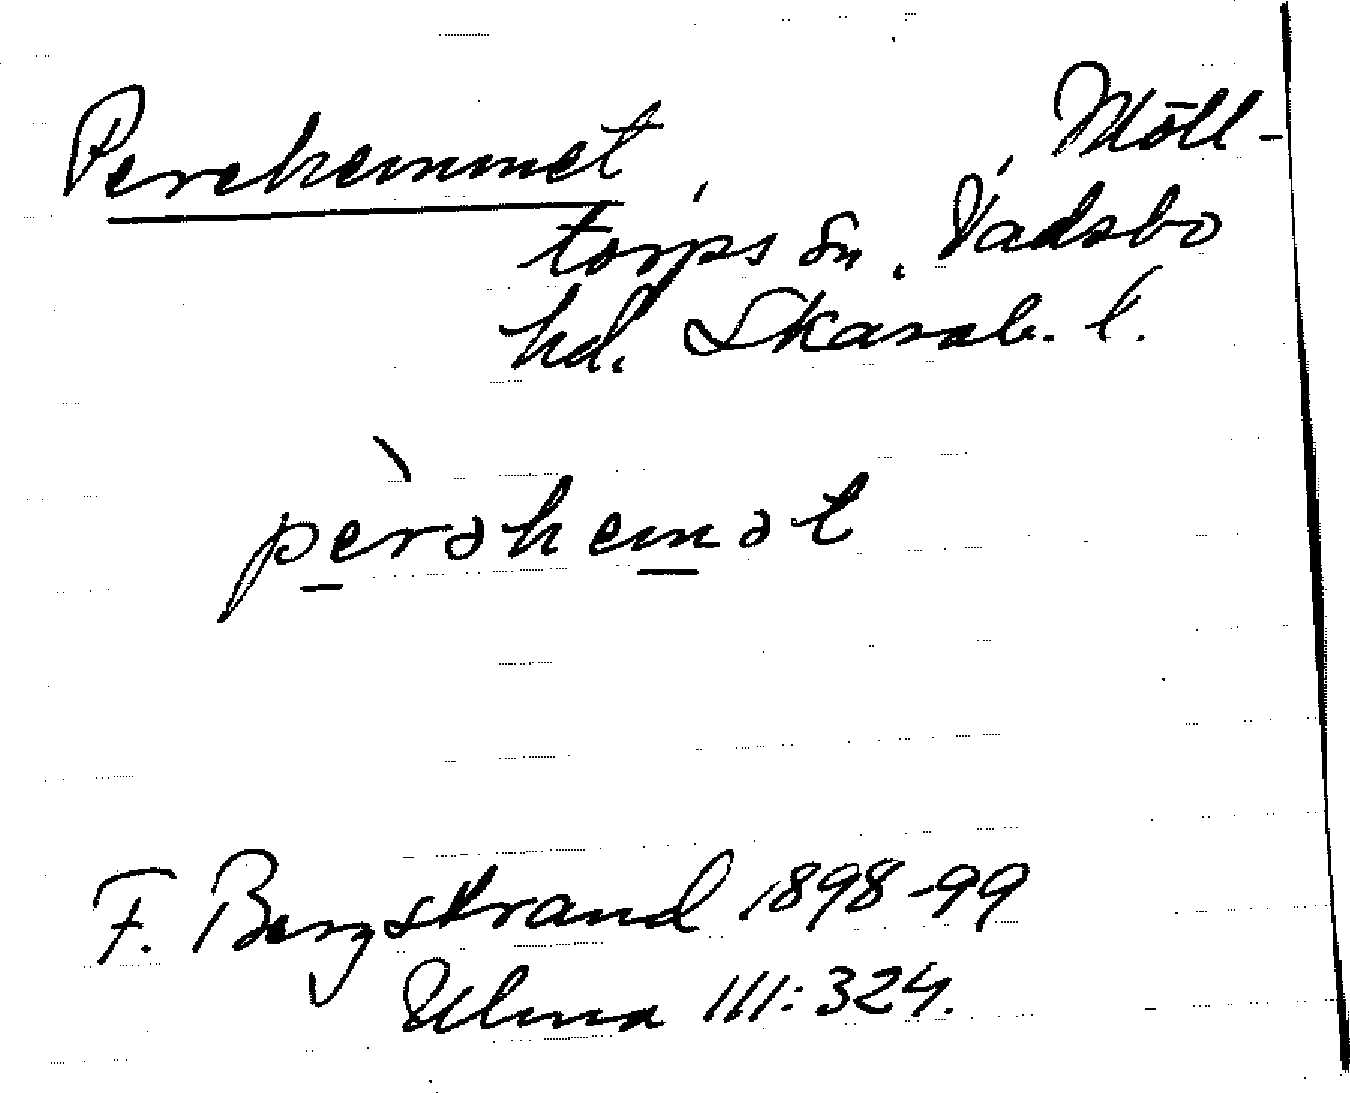 Perehemmet, , Möll-
torps sn. Vadsbo
hd. Skarab. l.
pèrəhemət
F. Bergstrand 1898-99
Ulma 111:324.